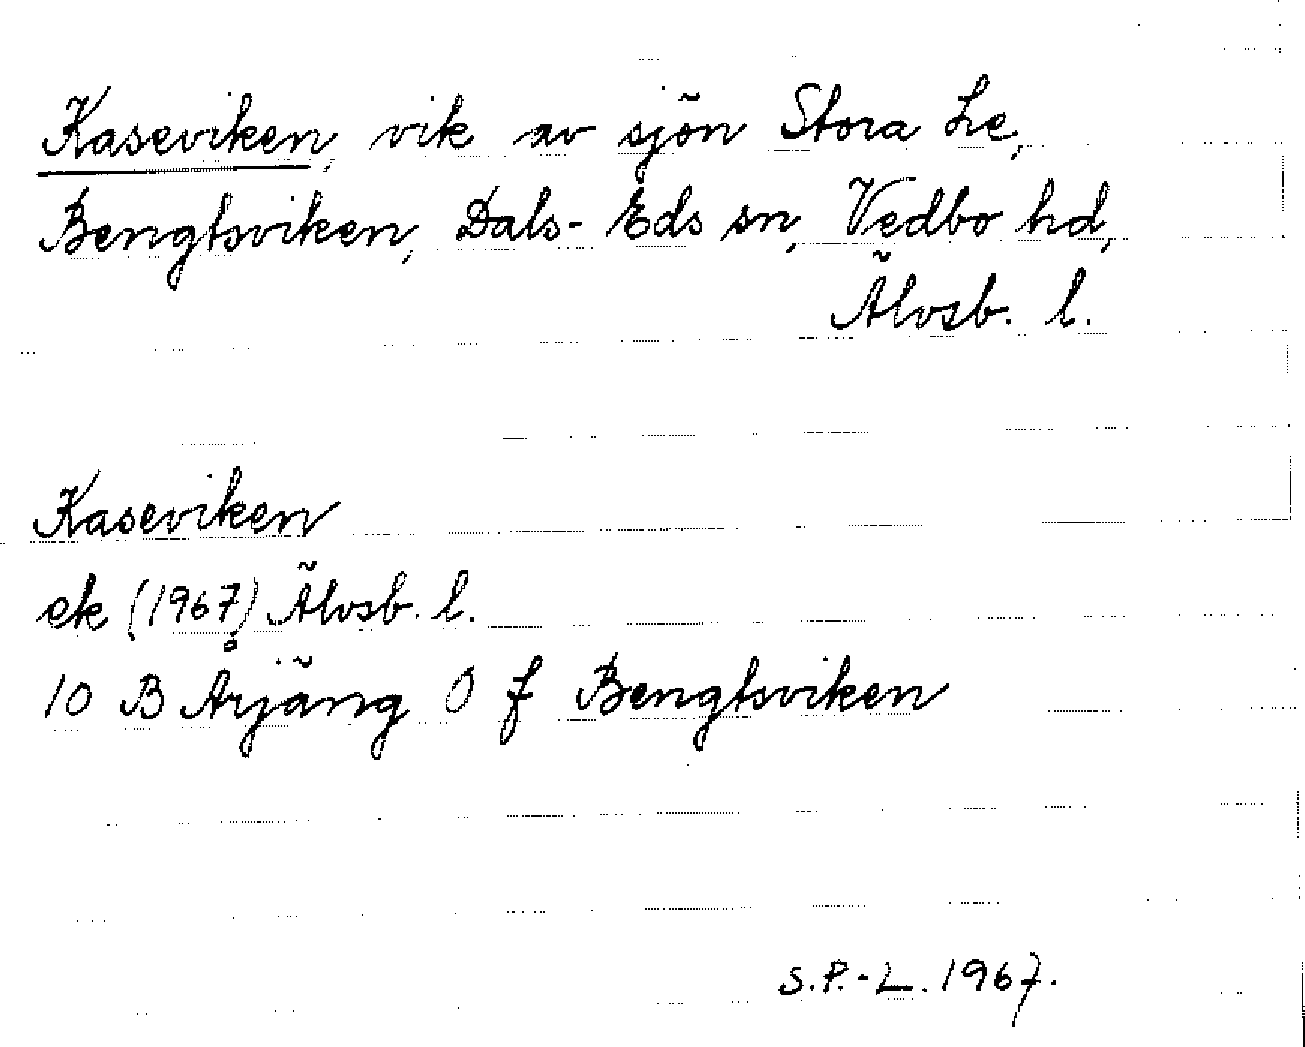 Kaseviken, vik av sjön Stora Le,
Bengtsviken, Dals-Eds sn, Vedbo hd,
Älvsb. l.
Kaseviken
ek (1967) Älvsb. l.
10 B Årjäng 0 f Bengtsviken
S.P.-L. 1967.